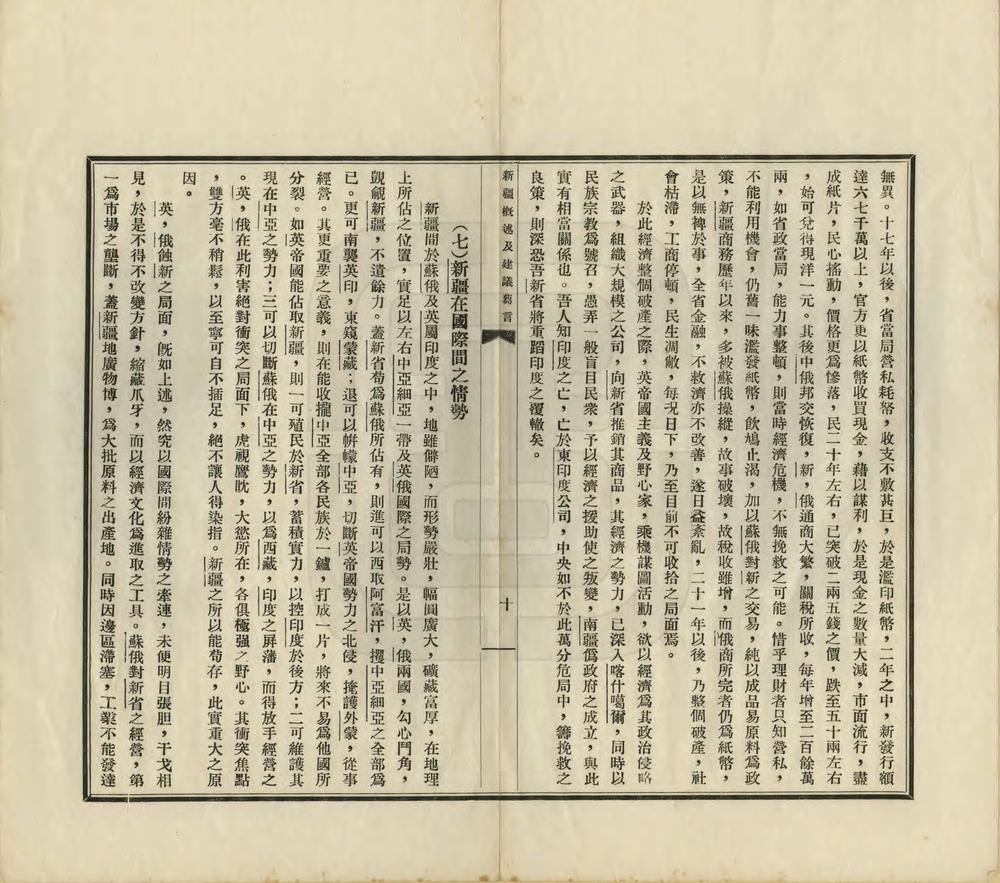 無異。十七年以後，省當局營私耗帑，收支不敷甚巨，於是濫印紙幣，二年之中，新發行額
達六七千萬以上，官方更以紙幣收買現金，藉以謀利，於是現金之數量大減，市面流行，盡
成紙片，民心搖動，價格更爲慘落，民二十年左右，已突破二兩五錢之價，跌至五十兩左右
，始可兌得現洋一元。其後中俄邦交恢復，新，俄通商大繁，關稅所收，每年增至二百餘萬
兩，如省政當局，能力事整頓，則當時經濟危機，不無挽救之可能。惜乎理財者只知營私，
不能利用機會，仍舊一味濫發紙幣，飲鴆止渴，加以蘇俄對新之交易，純以成品易原料爲政
策，新疆商務歷年以來，多被蘇俄操縱，故事破壞，故稅收雖增，而俄商所完者仍爲紙幣，
是以無裨於事，全省金融，不救濟亦不改善，遂日益紊亂，二十一年以後，乃整個破產，社
會枯滯，工商停頓，民生凋敝，每況日下，乃至目前不可收拾之局面焉。
於此經濟整個破產之際，英帝國主義及野心家，乘機謀圖活動，欲以經濟爲其政治侵略
之武器，組織大規模之公司，向新省推銷其商品，其經濟之勢力，已深入喀什噶爾，同時以
民族宗教爲號召，愚弄一般盲目民衆，予以經濟之援助使之叛變，南疆僞政府之成立，與此
實有相當關係也。吾人知印度之亡，亡於東印度公司，中央如不於此萬分危局中，籌挽救之
良策，則深恐吾新省將重蹈印度之覆轍矣。
新疆概述及建議芻言
十
（七）新疆在國際間之情勢
新疆間於蘇俄及英屬印度之中，地雖僻陋，而形勢嚴壯，幅圓廣大，礦藏富厚，在地理
上所佔之位置，實足以左右中亞細亞一帶及英俄國際之局勢。是以英，俄兩國，勾心鬥角，
覬覦新疆，不遺餘力。蓋新省苟爲蘇俄所佔有，則進可以西取阿富汗，攫中亞細亞之全部爲
已。更可南襲英印，東窺蒙藏；退可以帡幪中亞，切斷英帝國勢力之北侵，掩護外蒙，從事
經營。其更重要之意義，則在能收攏中亞全部各民族於一鑪，打成一片，將來不易爲他國所
分裂。如英帝國能佔取新疆，則一可殖民於新省，蓄積實力，以控印度於後方；二可維護其
現在中亞之勢力；三可以切斷蘇俄在中亞之勢力，以爲西藏，印度之屏藩，而得放手經營之
。英，俄在此利害絕對衝突之局面下，虎視鷹眈，大慾所在，各俱極强之野心。其衝突焦點
，雙方毫不稍鬆，以至寧可自不插足，絕不讓人得染指。新疆之所以能苟存，此實重大之原
因。
英，俄蝕新之局面，旣如上述，然突以國際間紛雜情勢之牽連，未便明目張胆，干戈相
見，於是不得不改變方針，縮藏爪牙，而以經濟文化爲進取之工具。蘇俄對新省之經營，第
一爲市場之壟斷，蓋新疆地廣物博，爲大批原料之出產地。同時因邊區滯塞，工業不能發達